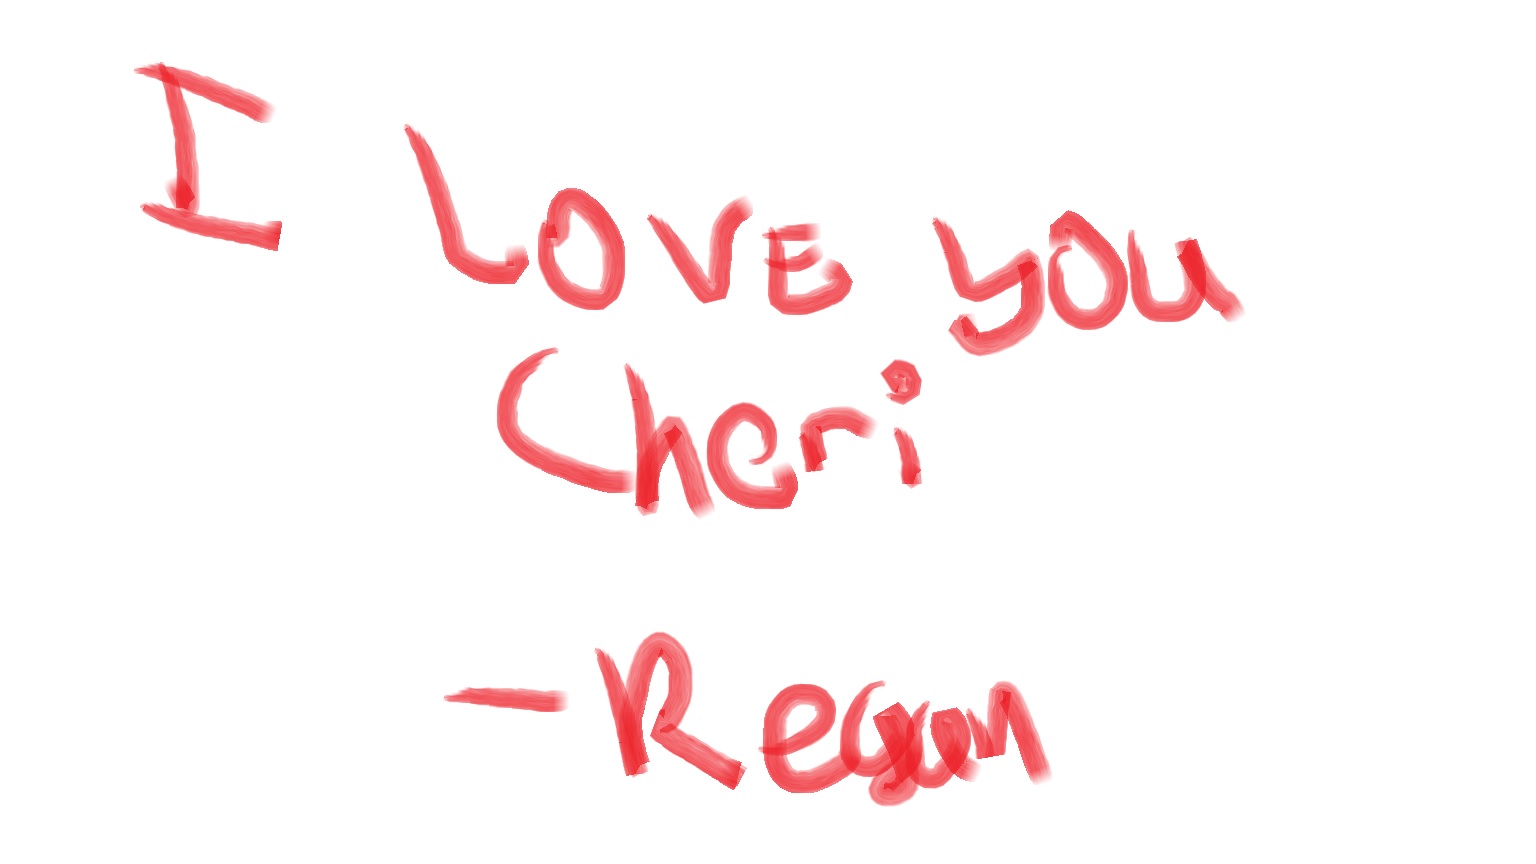 I LOVE you
Cheri
- Regan